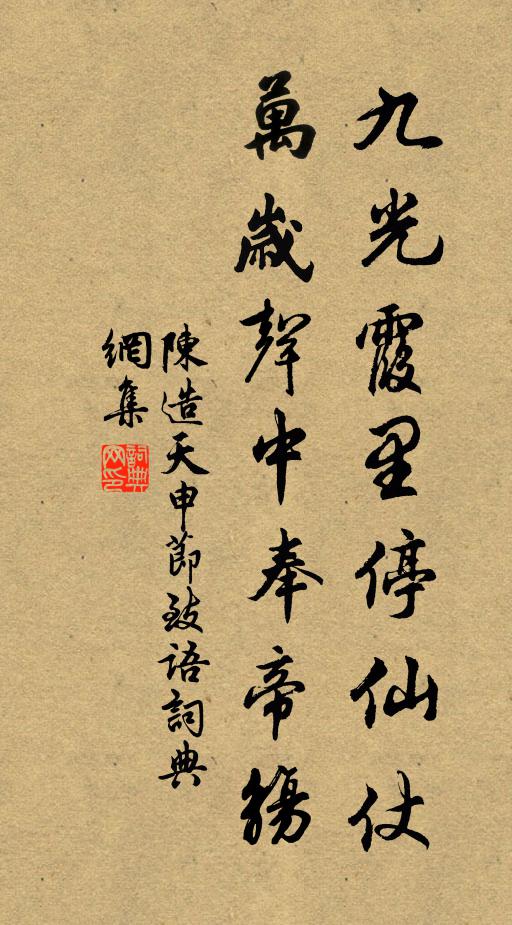 九光霞里停仙仗
萬歲聲中奉帝觴
陳造天申節致語詞典
網集
詞典
网印